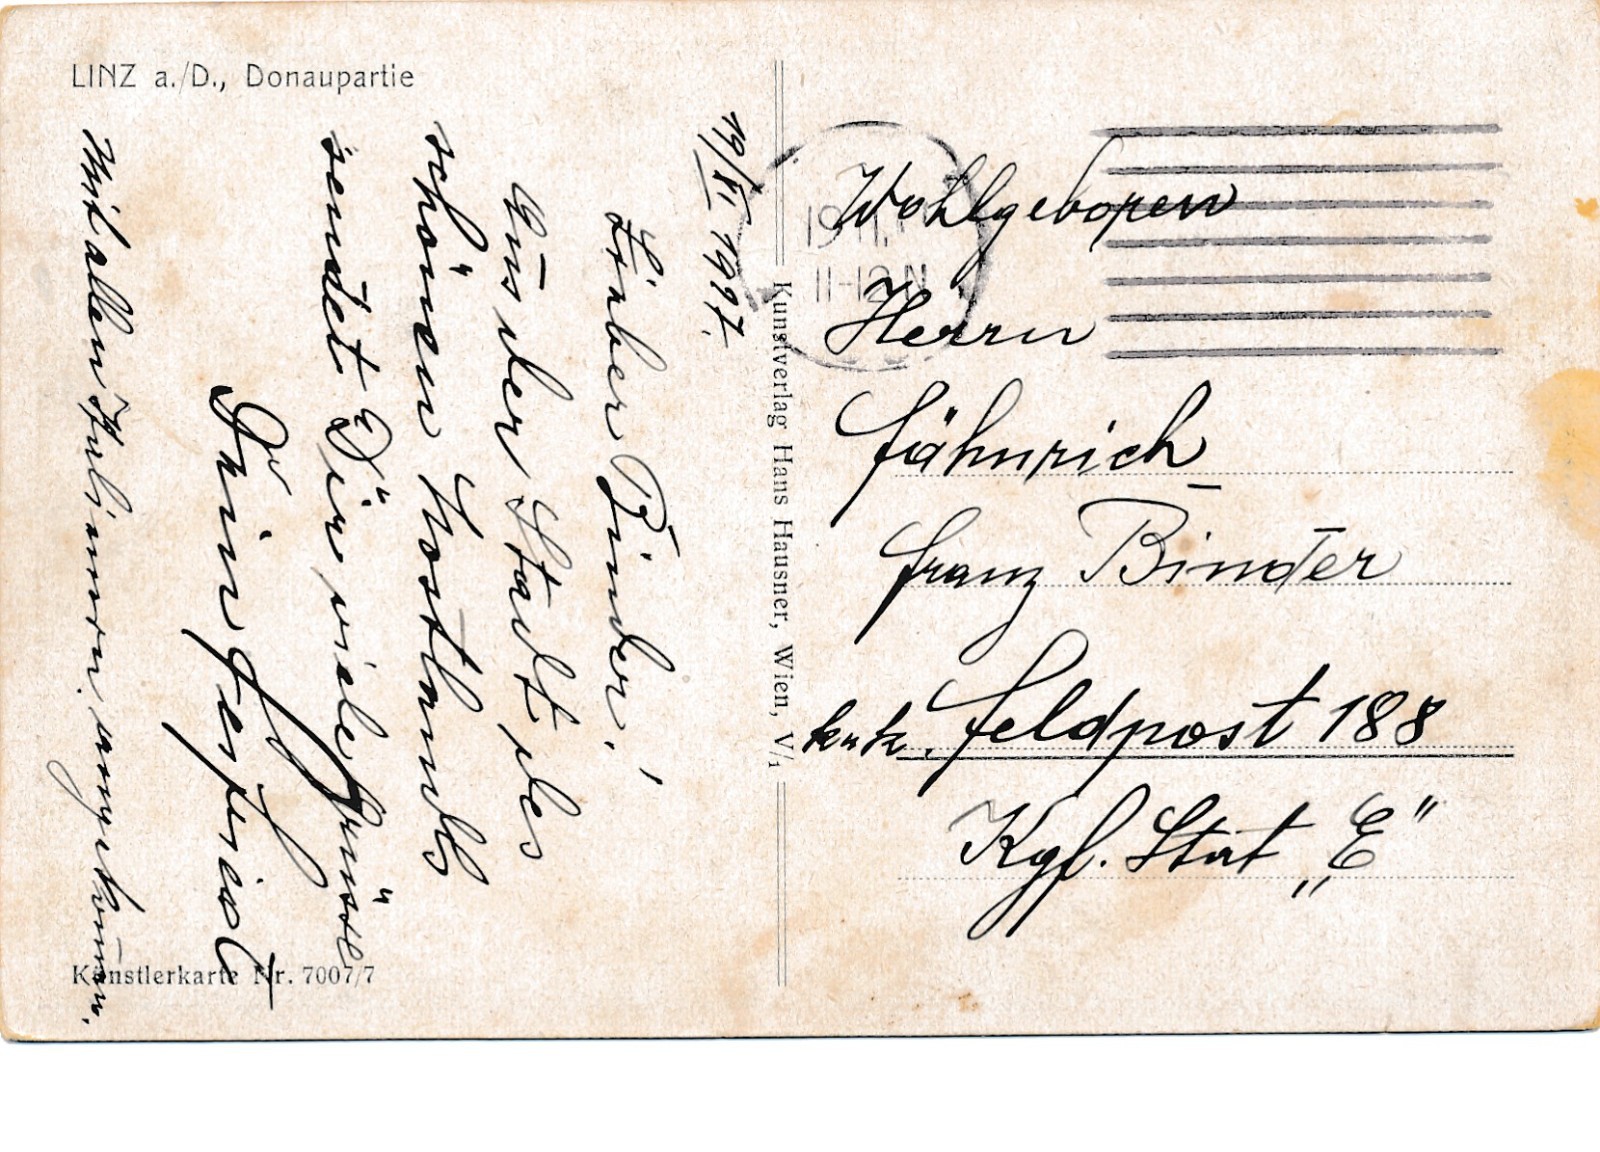 LINZ a./D., Donaupartie
19/XI 1917.
Lieber Binder!
Aus der Stadt des
schönen Kostlands
sendet Dir viele Grüsse
Dein
Mit allen angekommen.
Künstlerkarte Nr. 7007/7
Kunstverlag Hans Hausner, Wien, V/1
11-12 N
Wohlgeboren
Herrn
Fähnrich
Franz Binder
k.u.k. Feldpost 188
Kgf. Stat „E"